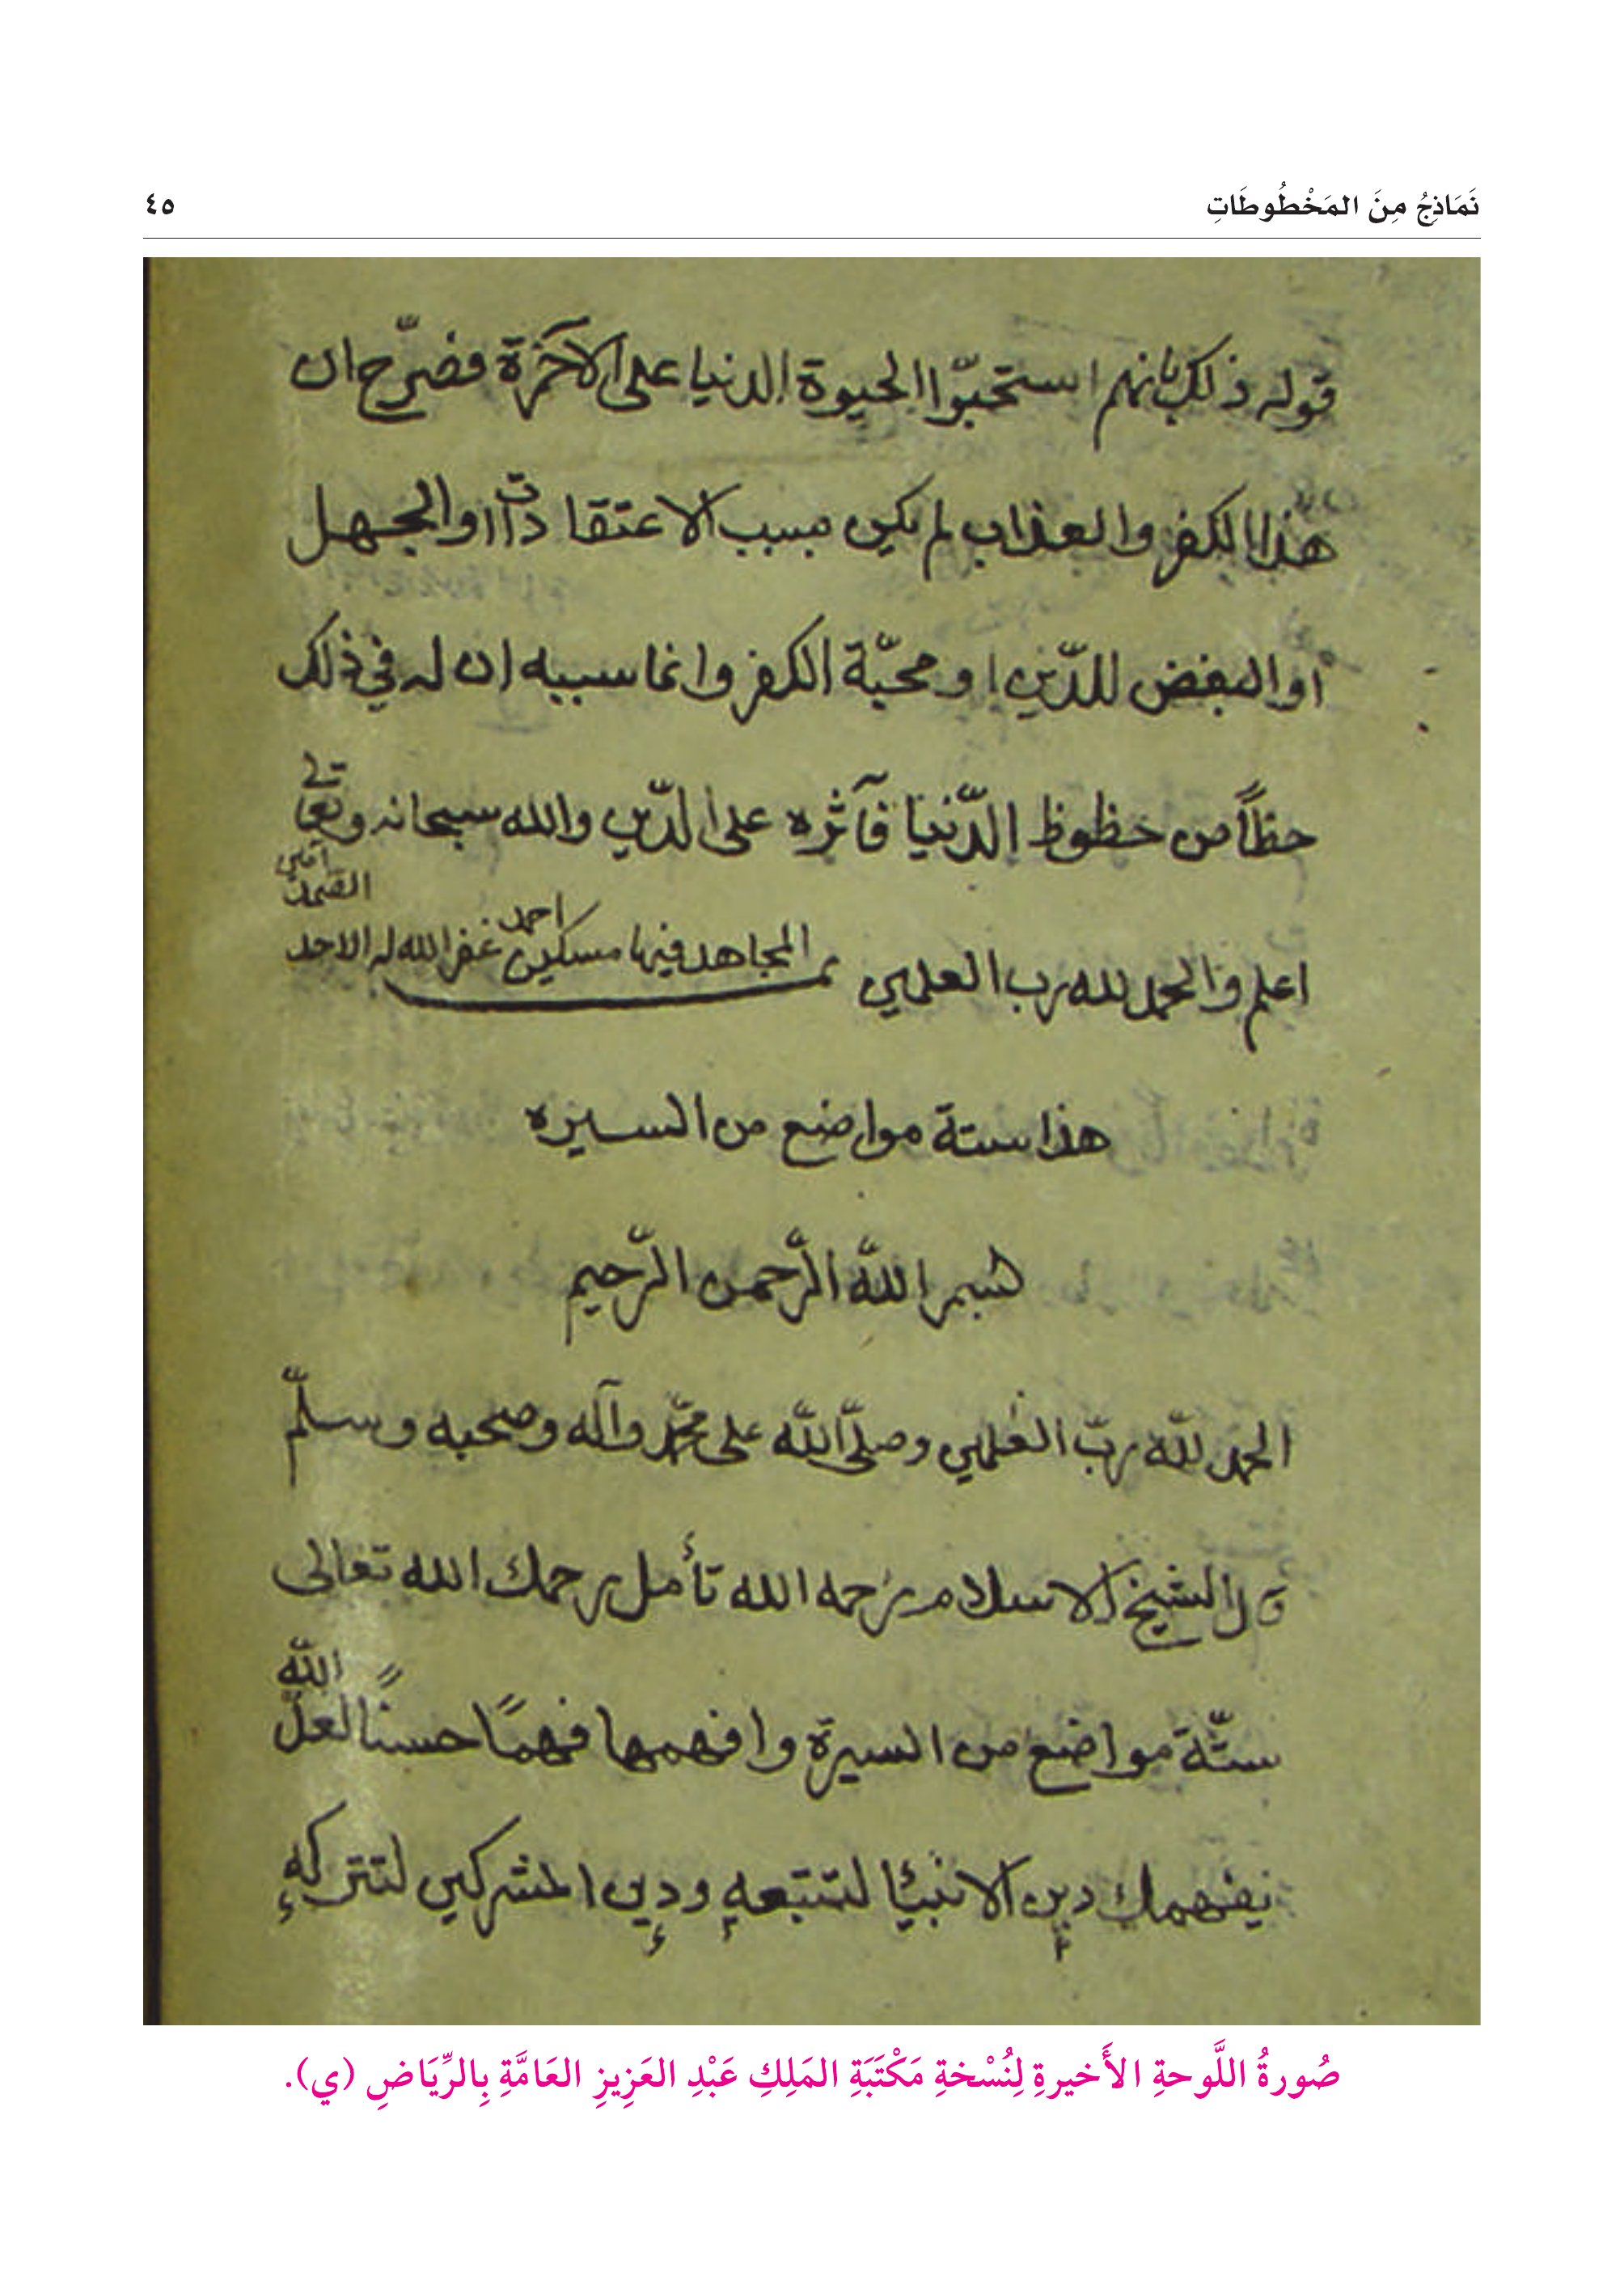 نَمَاذِجُ مِنَ المَخْطُوطَاتِ
٤٥
قوله ذلك بانهم استحبّوا الحيوة الدنيا على الآخرة فصرّح ان
هذا الكفر والعذاب لم يكن بسبب الاعتقادات او الجهل
او البغض للدّين او محبّة الكفر وانما سببه ان له في ذلك
حظاً من حظوظ الدّنيا فآثره على الدّين والله سبحانه وتعالى
اعلم والحمد لله رب العلمين المجاهد فيها مسكين احمد غفر الله له الاحد الصمد آمين
هذا ستة مواضع من السيره
بسم الله الرّحمن الرّحيم
الحمد لله ربّ العلمين وصلّى الله على محمّد وآله وصحبه وسلّم
قال الشيخ الاسلام رحمه الله تأمل رحمك الله تعالى
ستّة مواضع من السيرة وافهمها فهمًا حسنًا لعلّ الله
يفهمك دين الانبيا لتتبعه ودين المشركين لتتركه
صُورةُ اللَّوحةِ الأَخيرةِ لِنُسْخةِ مَكْتَبَةِ المَلِكِ عَبْدِ العَزِيزِ العَامَّةِ بِالرِّيَاضِ (ي).